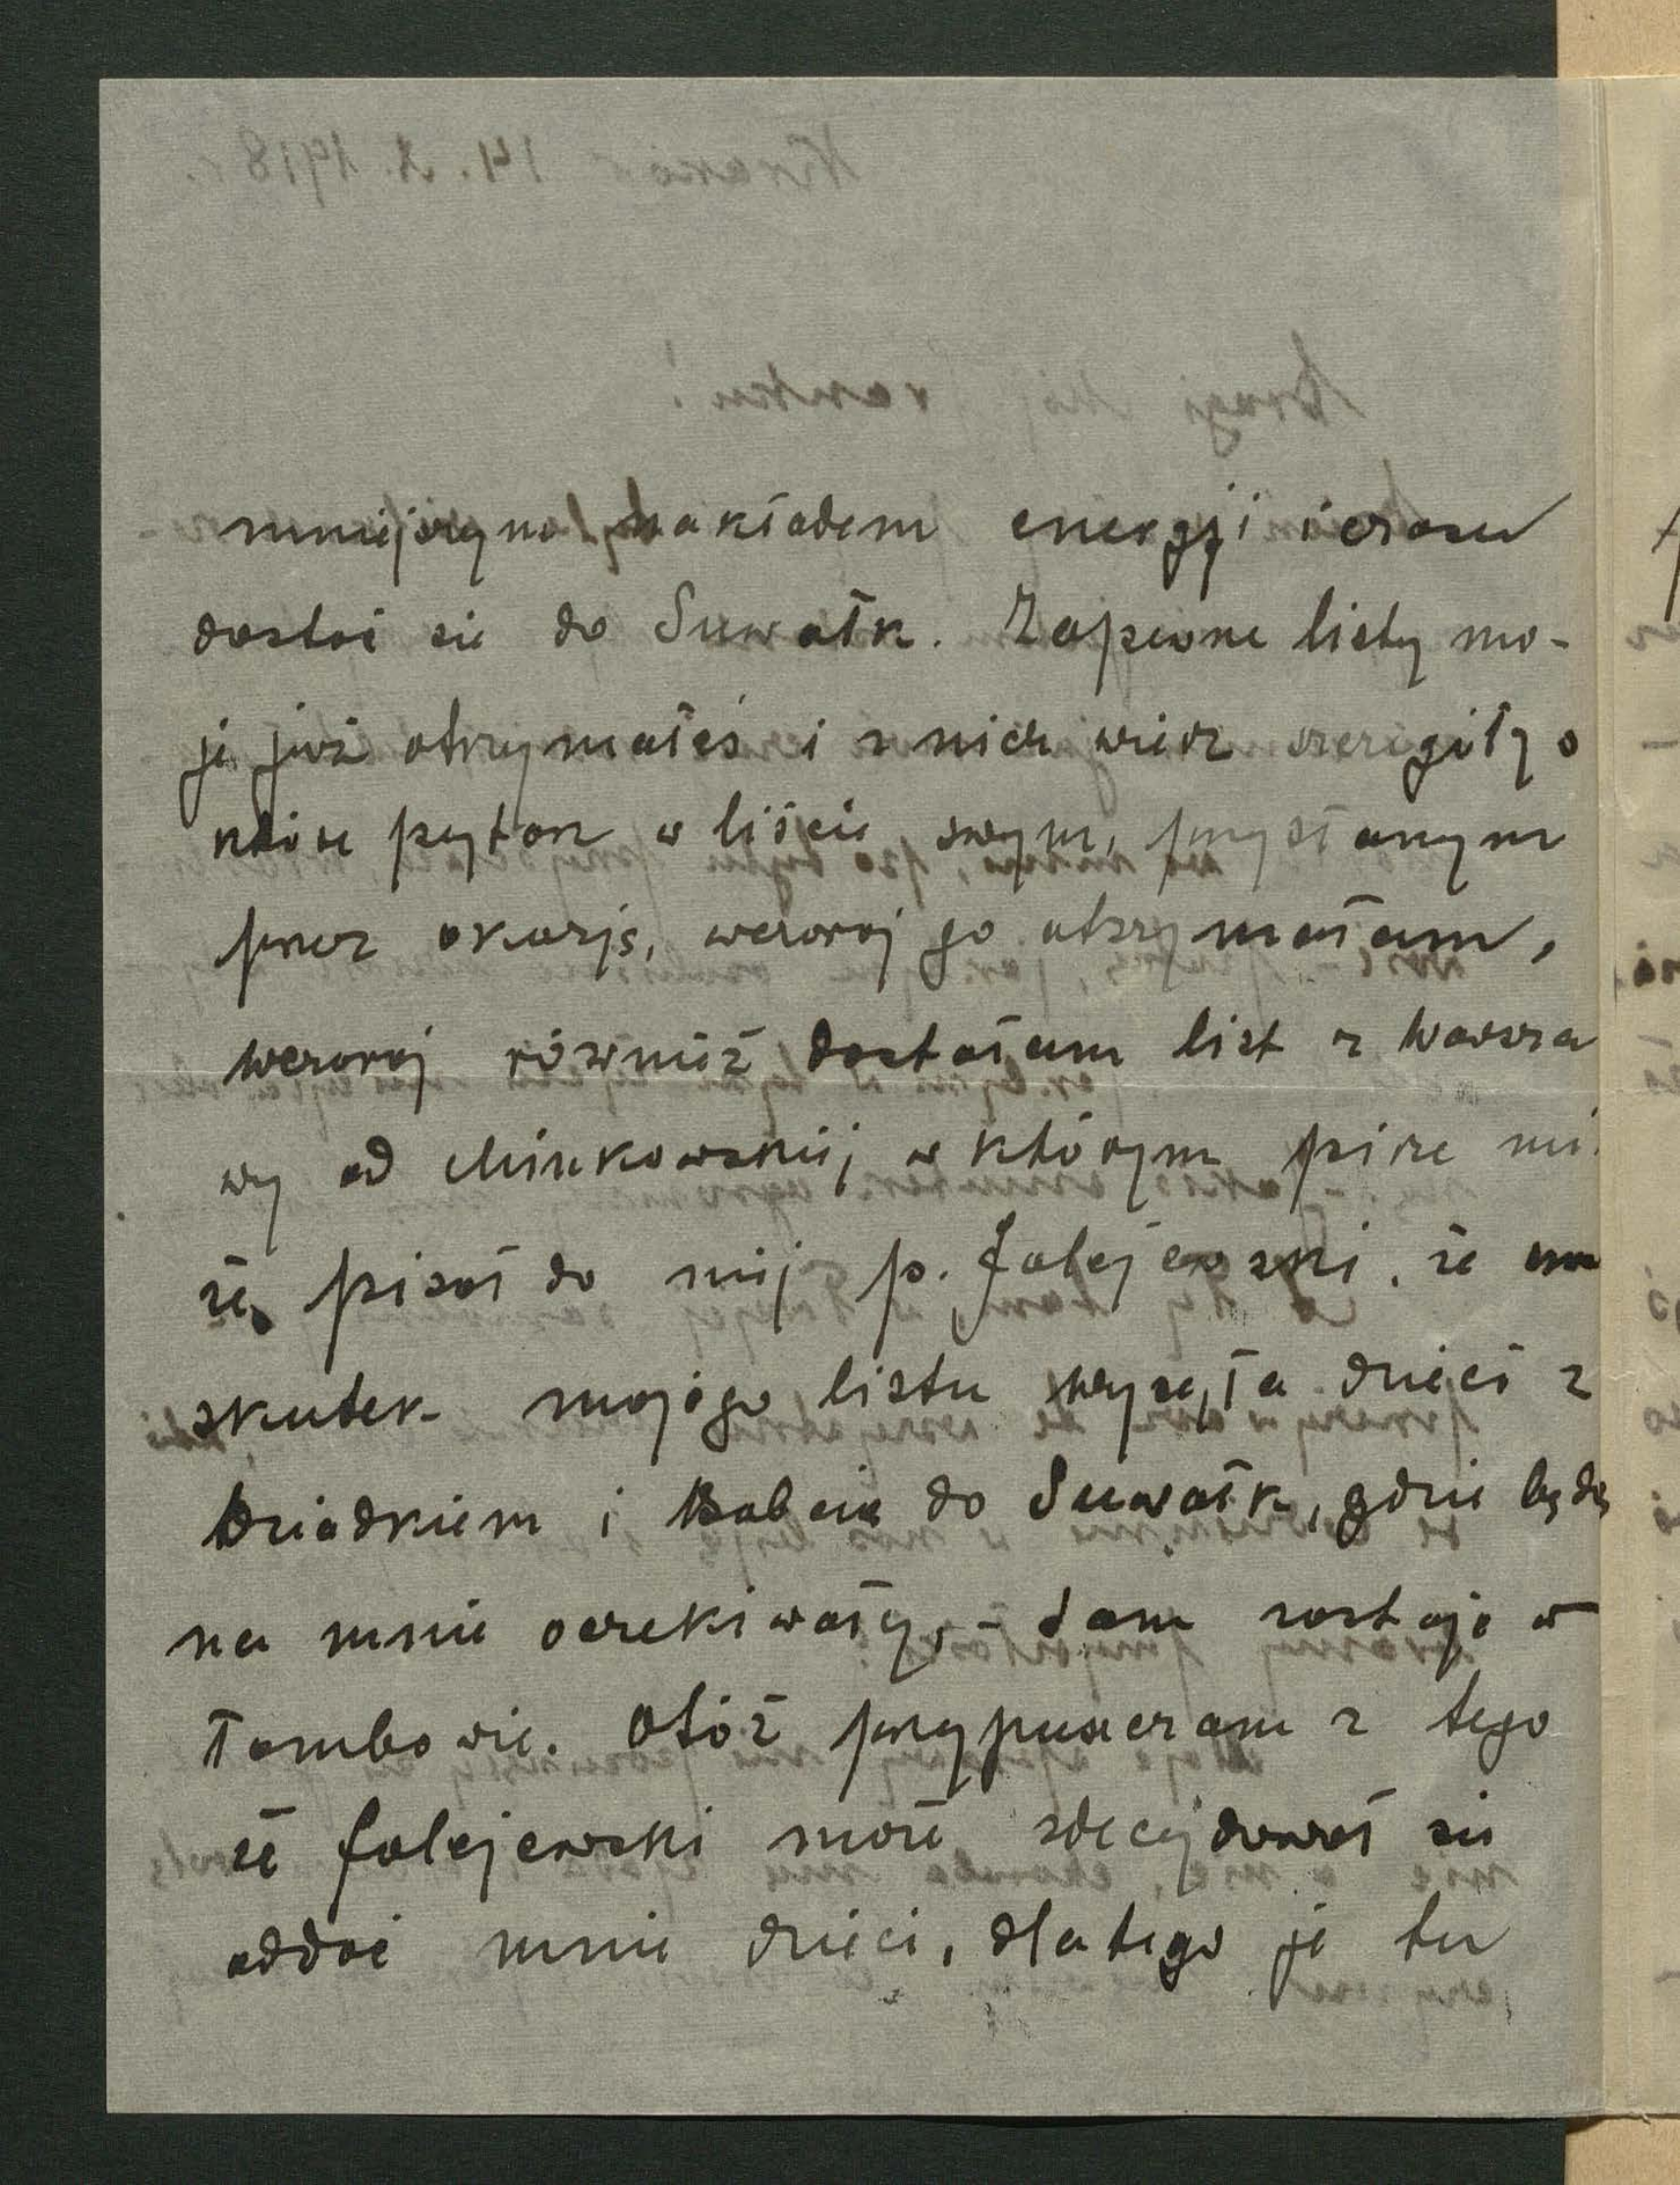 mniejszym nakładem energji i czasu
dostać się do Suwałk. Zapewne listy mo-
je już otrzymałeś i z nich wiesz szczegóły o
które pytasz w liście swym, przysłanym
przez okazję, wczoraj go otrzymałam,
wczoraj również dostałam list z Warsza
wy od Minkowskiej w którym pisze mi
że pisał do niej p. Falejewski, że na
skutek mojego listu wysyła dzieci z
Dziadkiem i Babcią do Suwałk, gdzie będą
na mnie oczekiwały, - sam zostaje w
Tambowie. Otóż przypuszczam z tego
że Falejewski może zdecydował się
oddać mnie dzieci, dlatego je tu